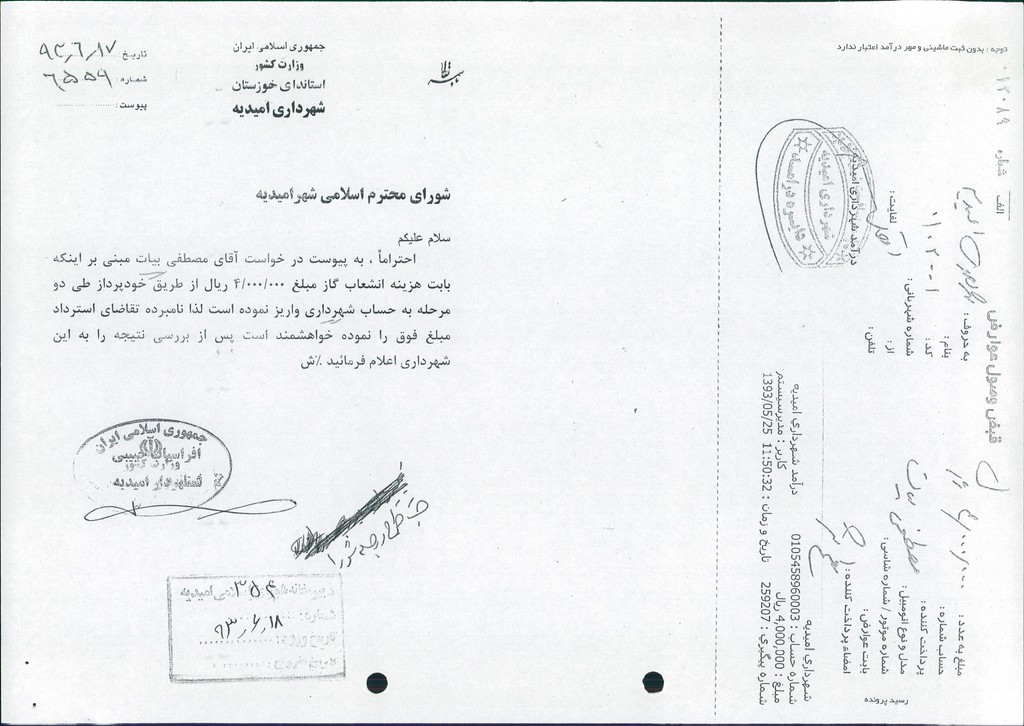 بسمه تعالی
جمهوری اسلامی ایران
وزارت کشور
استاندای خوزستان
شهرداری امیدیه
تاریخ ۹۳/۶/۱۷
شماره: ۶۵۵۹
پیوست:
شورای محترم اسلامی شهر امیدیه
سلام علیکم
احتراماً ، به پیوست در خواست آقای مصطفی بیات مبنی بر اینکه
بابت هزینه انشعاب گاز مبلغ ۴/۰۰۰/۰۰۰ ریال از طریق خودپرداز طی دو
مرحله به حساب شهرداری واریز نموده است لذا نامبرده تقاضای استرداد
مبلغ فوق را نموده خواهشمند است پس از بررسی نتیجه را به این
شهرداری اعلام فرمائید ٪ش
جمهوری اسلامی ایران
افراسیاب حبیبی
وزارت کشور
شهردار امیدیه
امیدیه
شماره: ۳۵۴
تاریخ ورود: ۹۳/۶/۱۸
توجه : بدون ثبت ماشینی و مهر درآمد اعتبار ندارد
قبض وصول عوارض
الف
شماره ۰۱۲۰۸۹
مبلغ به عدد: ۴/۰۰۰/۰۰۰
به حروف:
حساب شماره:
بنام:
پرداخت کننده: مصطفی بیات
کد:
مدل و نوع اتومبیل:
شماره شهربانی:
شماره موتور / شماره شاسی:
از:
لغایت:
بابت عوارض:
تلفن:
امضاء پرداخت کننده:
درآمد شهرداری امیدیه
شهرداری امیدیه
شهرداری امیدیه
درآمد شهرداری امیدیه
شماره حساب : 0105458960003
کاربر : مدیرسیستم
مبلغ : 4,000,000 ریال
تاریخ و زمان : 11:50:32 1393/05/25
شماره پیگیری : 259207
رسید پرونده